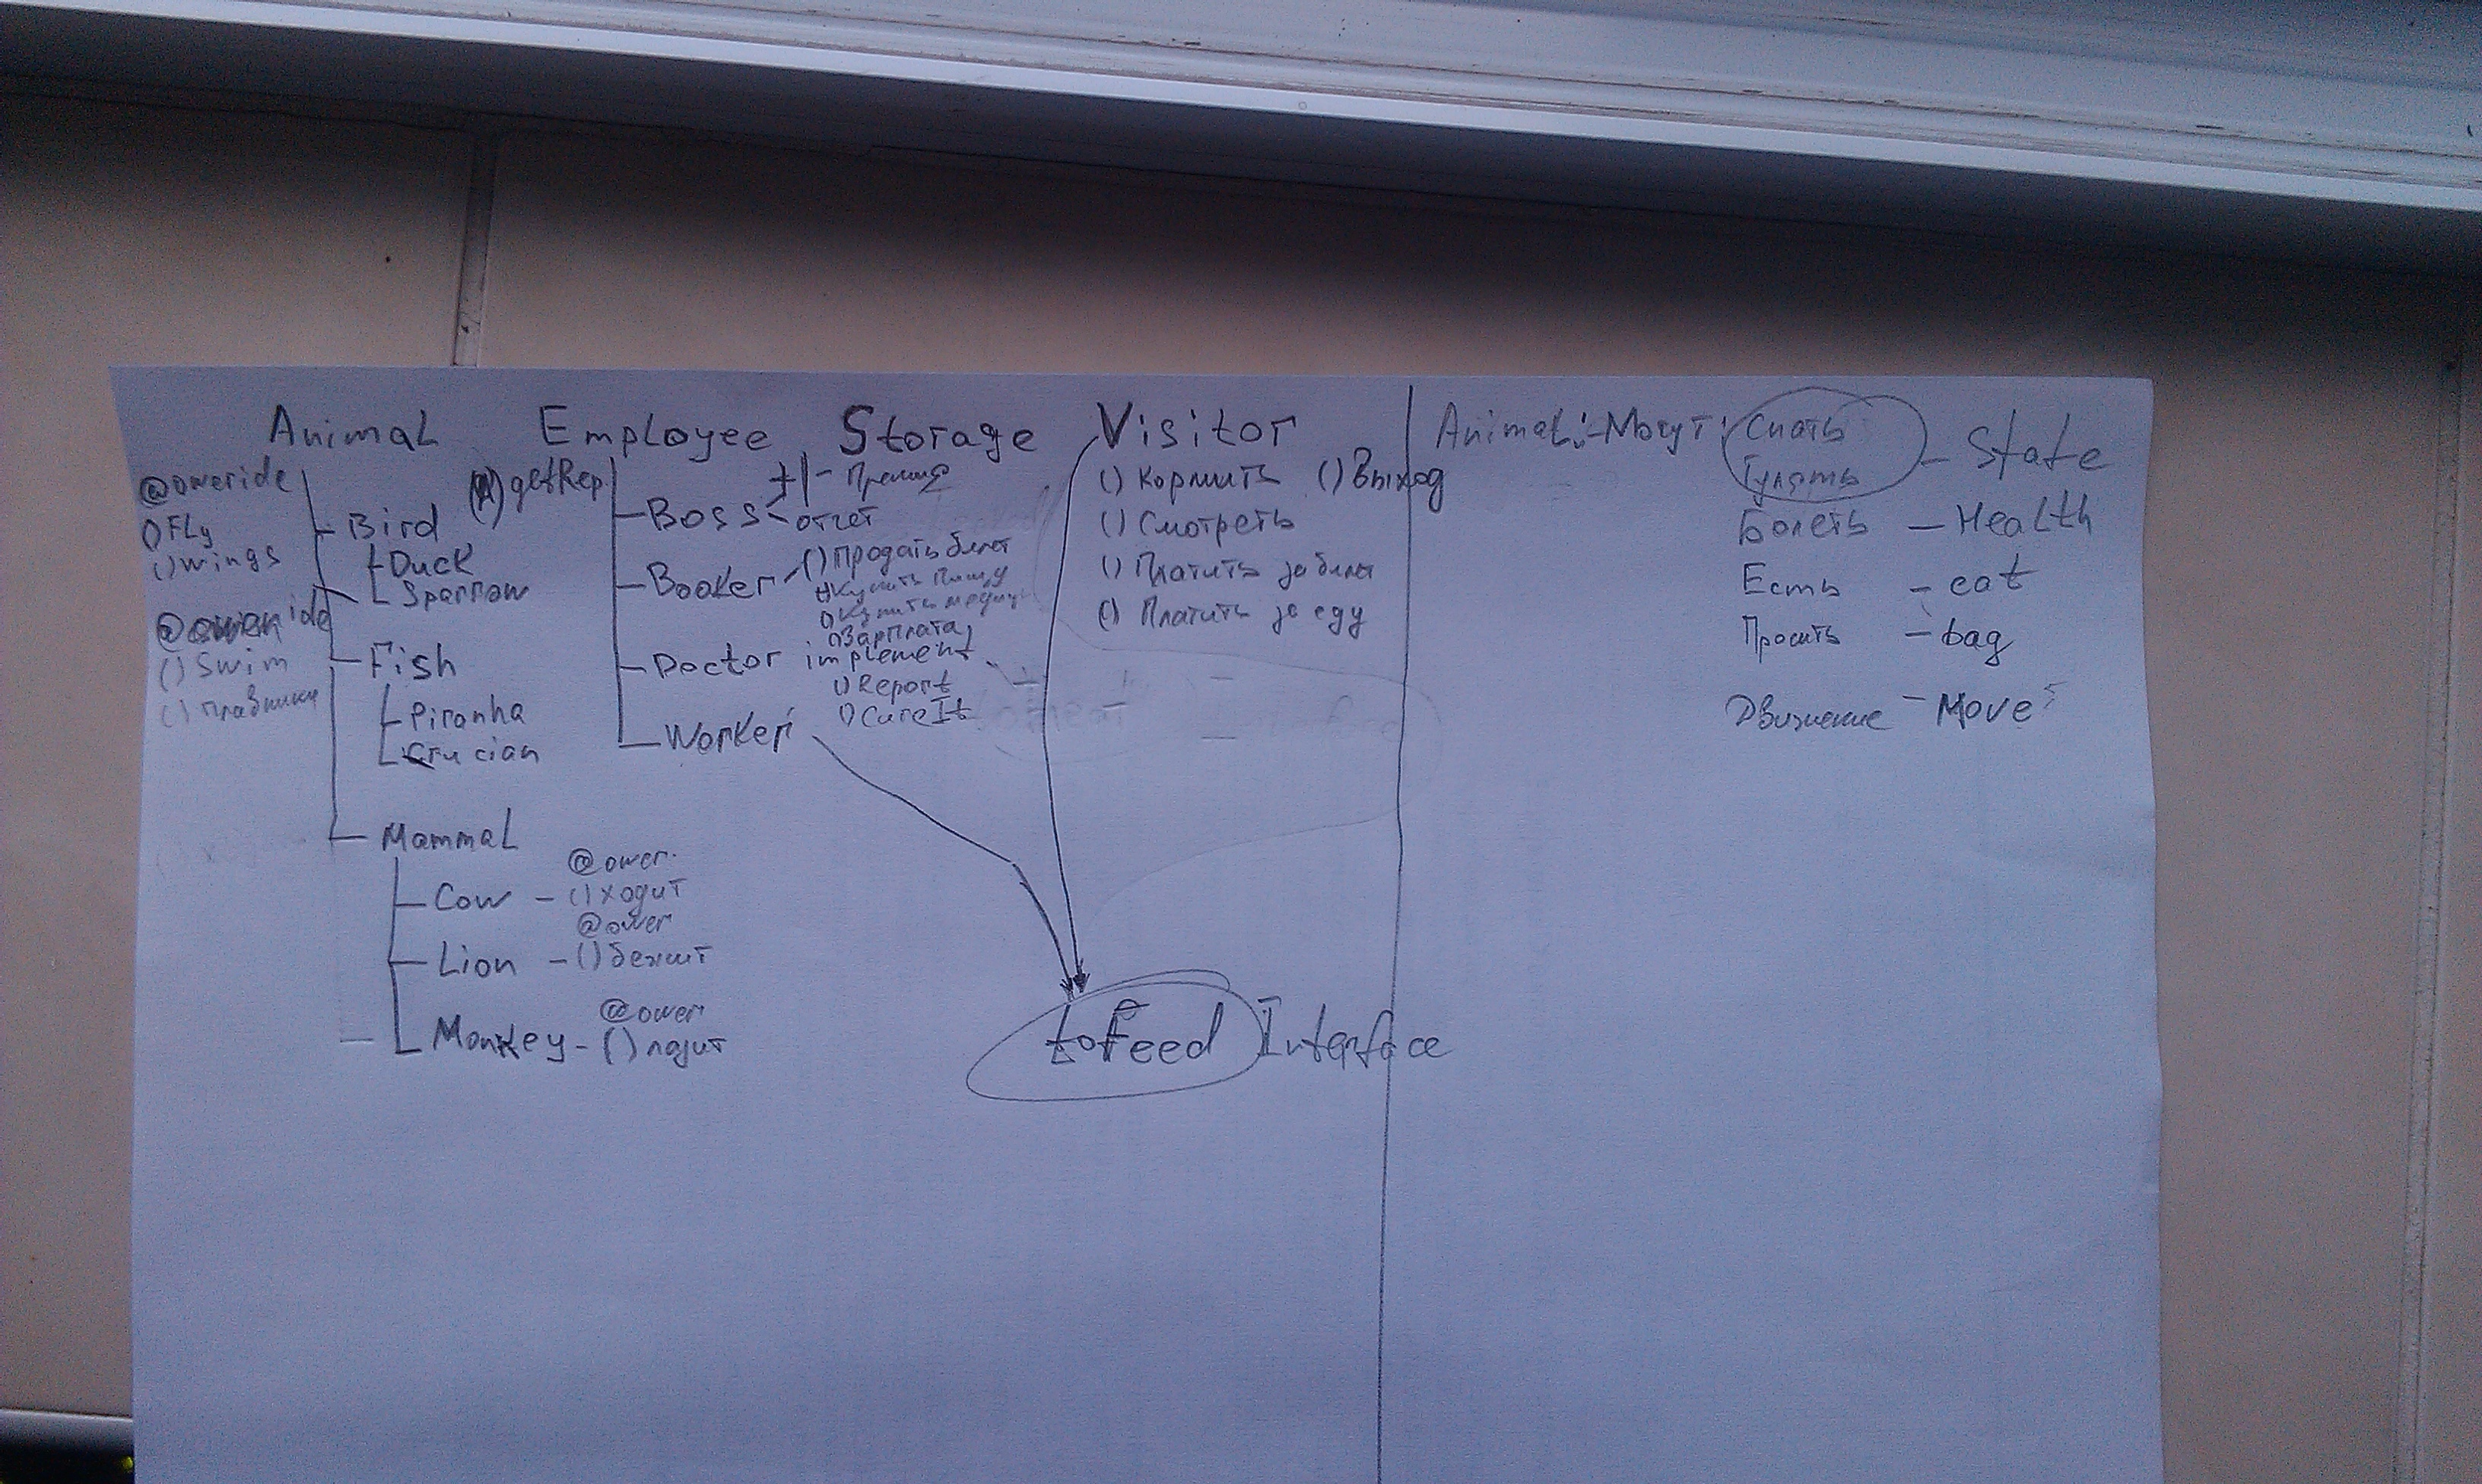 Animal Employee Storage Visitor
@oweride
() Fly
() wings
Bird
Duck
Sparrow
() Swim
() плавники
Fish
Piranha
Crucian
Mammal
Cow - () ходит
@ower.
Lion - () бежит
@ower
Monkey - () лазит
@ower
getRep
Boss
+|- Премия
отчет
Booker
() Продать билет
() Купить пищу
() Зарплата
Doctor implement
() Report
() CureIt
Worker
() Кормить () Выход
() Смотреть
() Платить за билет
() Платить за еду
toFeed Interface
Animal: - Могут: Спать
Гулять - State
Болеть - Health
Есть - eat
Просить - bag
Движение - Move